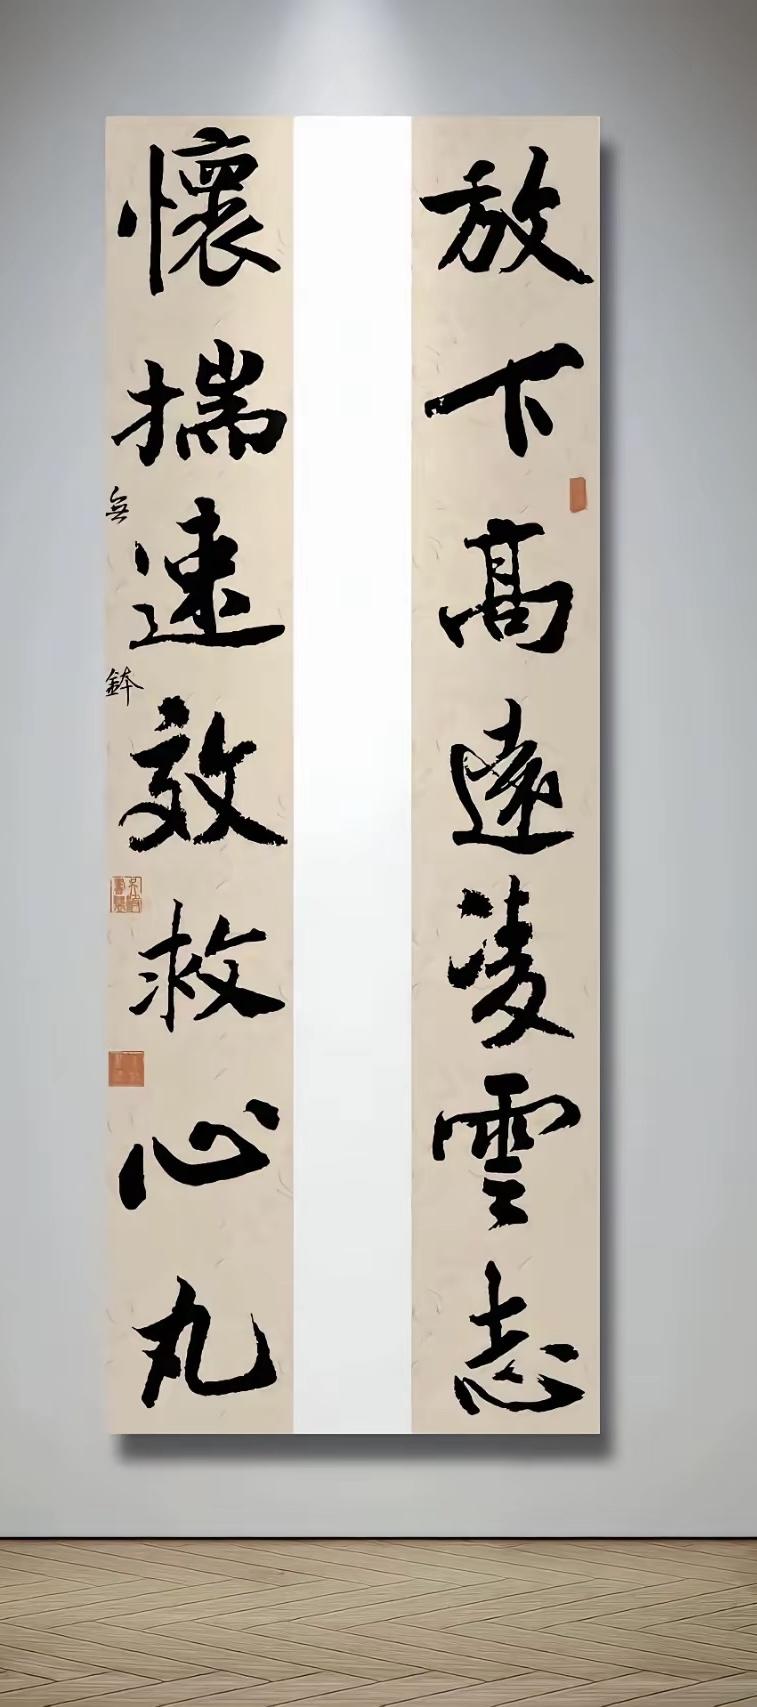 放下高遠凌雲志
懷揣速效救心丸
無鉢